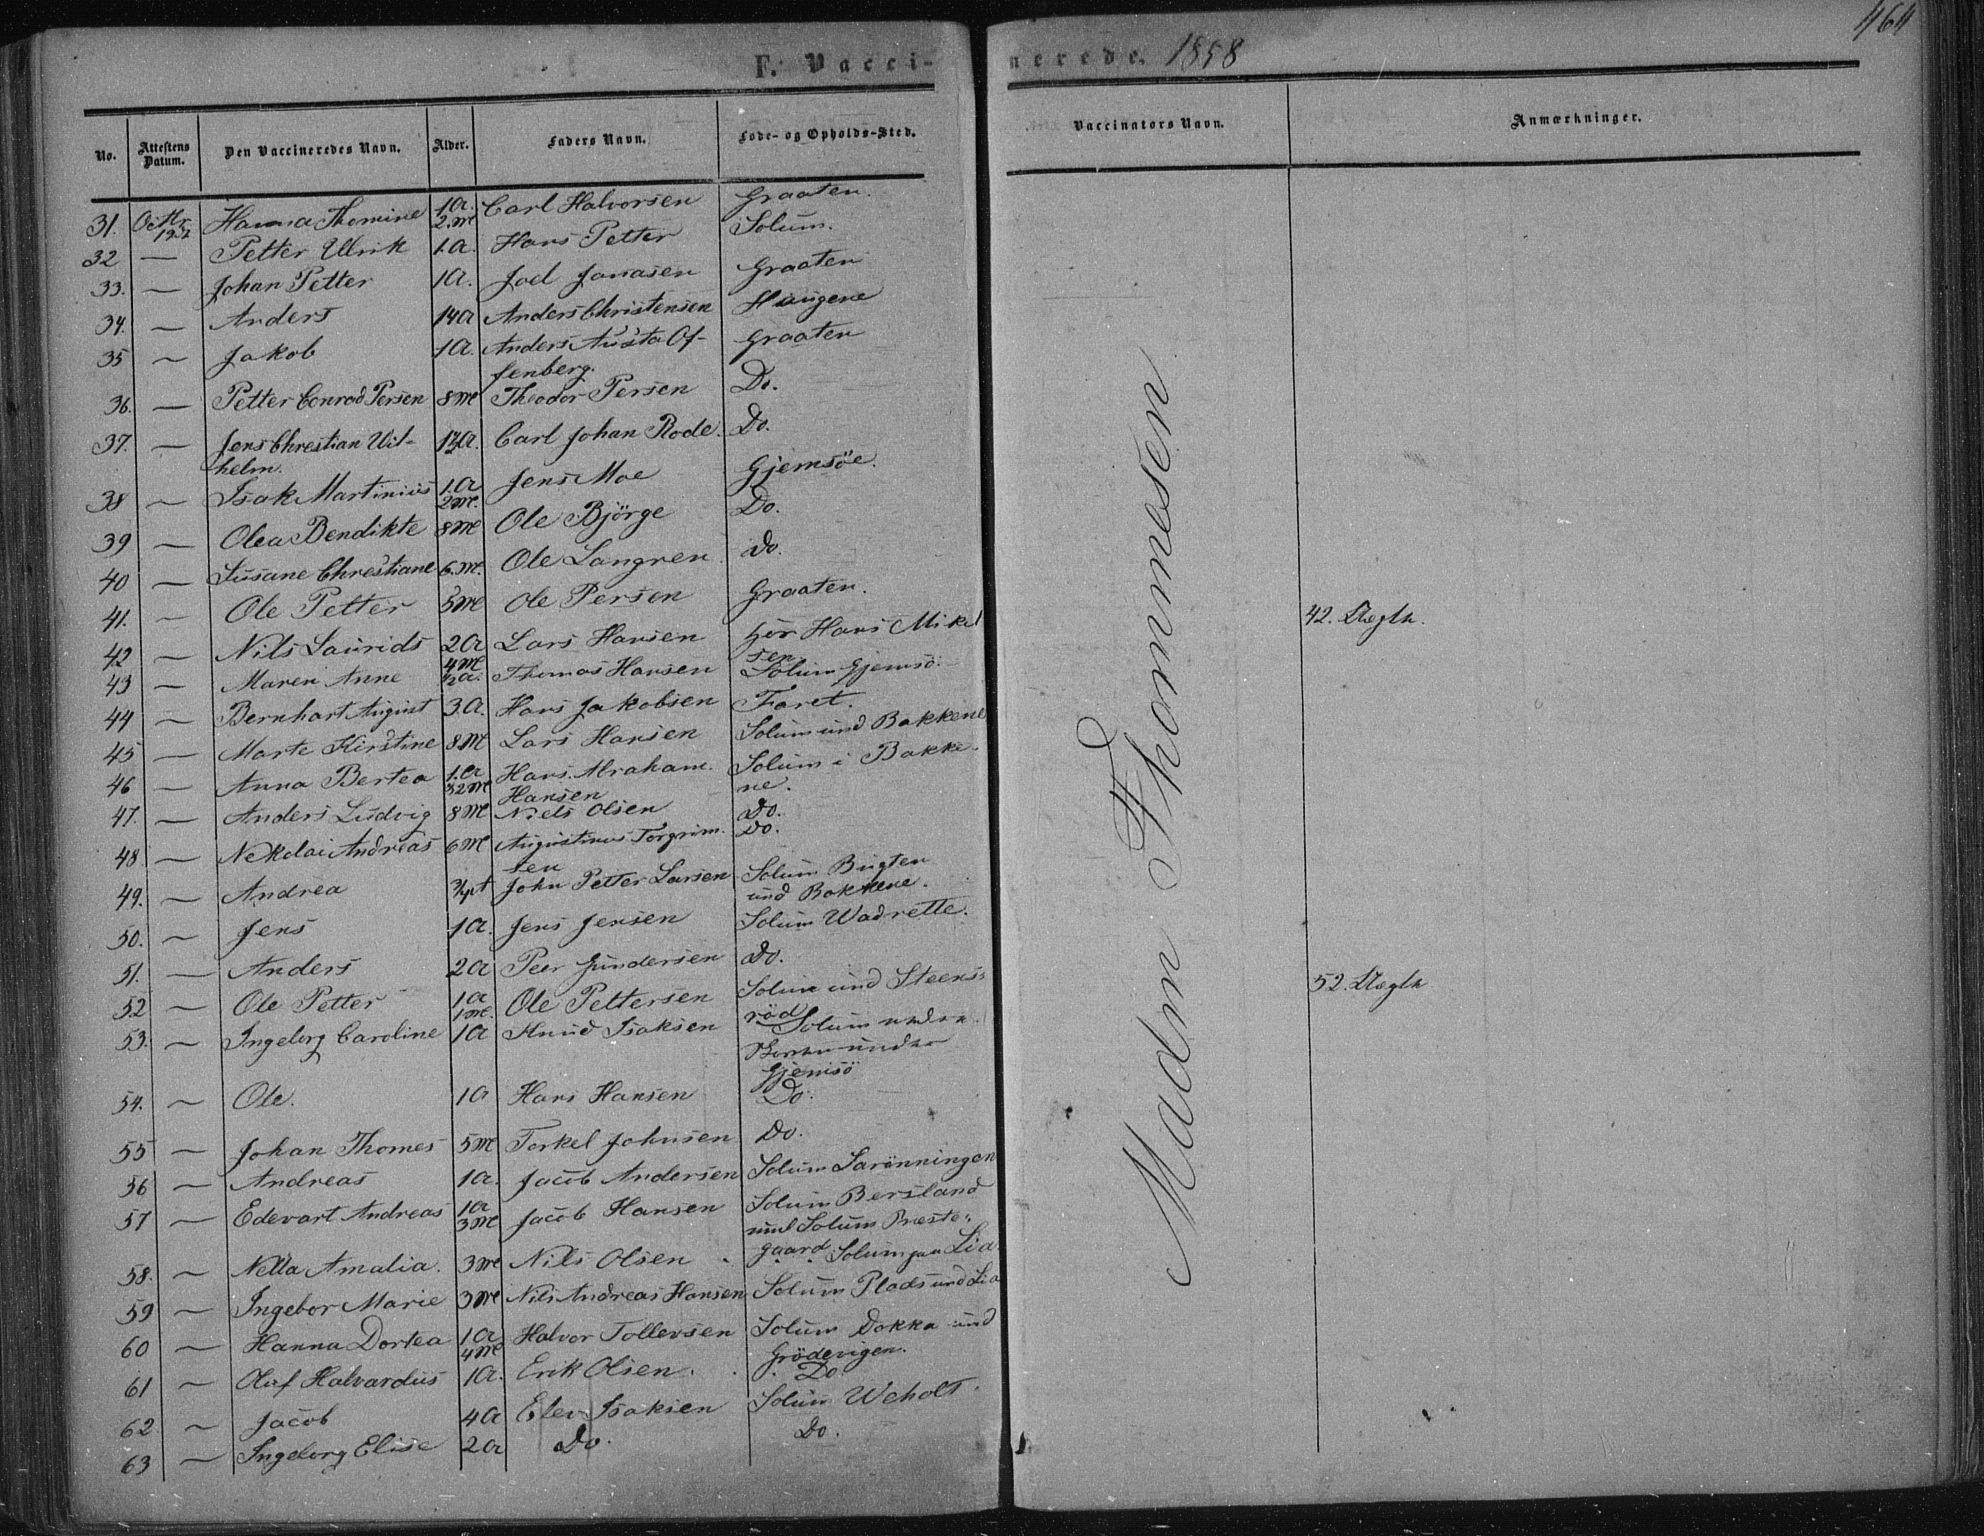 464
F. Vacci- nerede. 1858
No. Attestens Datum. Den Vaccineredes Navn. Alder. Faders Navn. Føde- og Opholds-Sted. Vaccinators Navn. Anmærkninger.
31. Octbr Hanna Thomine 1a. 2.M Carl Halvorsen Graaten.
32 — Petter Ulrik 1.a. Hans Petter Solum.
33. — Johan Petter 1a. Joel Jonasen Graaten
34. — Anders 14a Anders Christensen Haugene
35 — Jakob 1a. Anders Austa Of-
fenberg. Graaten
36. — Petter Conrod Persen 8M Theodor Persen Do.
37. — Jens Chrestian Vil-
helm. Carl Johan Rode. Do.
38 — Isak Martinius 1.a 2M. Jens Moe Gjemsöe.
39 — Olea Bendikte 8M Ole Björge Do.
40 — Susane Chrestiane 6.M. Ole Langren Do.
41. — Ole Petter 5M Ole Persen Graaten.
42 — Nils Laurids 2a 4M Lars Hansen hör Hans Mikel
sen. 42. Slegtn.
43 — Maren Anne ½a. Thomas Hansen Solum Gjemsö.
44 — Bernhart August 3.a. Hans Jakobsen Faret.
45 — Marte Kirstine 8M Lars Hansen Solum und Bakkene
46 — Anna Bertea 1.a Hans Abraham.
Hansen Solum i Bakke-
ne.
47. — Anders Ludvig 8M Niels Olsen Do.
48 — Nekolai Andreas 6M Augustinus Torgrim-
sen Do.
49. — Andrea John Petter Larsen Solum Bugten
und Bakkene.
50. — Jens 1a. Jens Jensen Solum Wadrette.
51. — Anders 2a Peer Gundersen Do.
52 — Ole Petter 1a 1M. Ole Pettersen Solum und Steens-
röd 52. Slegtn
53. — Ingeborg Caroline 1a Knud Isaksen Solum
under
Gjemsö
54. — Ole. 1a Hans Hansen Do.
55 — Johan Thomes 5M Torkel Johnsen Do.
56 — Andreas 1a. Jacob Andersen Solum Sarönningen
57 — Edevart Andreas 1a 3M Jacob Hansen Solum Bersland
und Solum Præste-
gaard
58. — Nella Amalia. 3M Nils Olsen Solum paa Lia.
59 — Ingebor Marie 3M Nils Andreas Hansen Solum Plads und Lia
60 — Hanna Dortea 1a 4M Halvor Tollevsen Solum Dokka und
Grödevigen.
61 — Oluf Halvardus 1a. Erik Olsen. Do
62 — Jacob 4a Elev Isaksen Solum Weholt.
63 — Ingeborg Elise 2a Do. Do.
Madm Thommesen